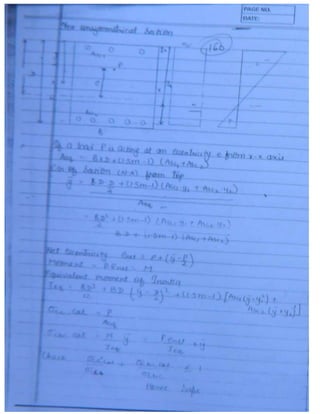 PAGE NO.
DATE:
For Unsymmetrical Section
166
Asc1
P
e
Asc2
B
If a load P is acting at an eccentricity e from x-x axis
Aeq = BD + (1.5m-1) (Asc1 + Asc2)
C.G. of Section (N-A) from top
ȳ = BD·D/2 + (1.5m-1) (Asc1 y1 + Asc2 y2)
Aeq
= BD²/2 + (1.5m-1) (Asc1 y1 + Asc2 y2)
BD + (1.5m-1) (Asc1 + Asc2)
Net eccentricity enet = e + (ȳ - D/2)
Moment = P enet = M
Equivalent moment of Inertia
Ieq = BD³/12 + BD (ȳ - D/2)² + (1.5m-1) [Asc1 (ȳ-y1)² +
σcc, cal = P/Aeq
σcbc, cal = M/Ieq ȳ = P enet × ȳ/Ieq
Check
≤ 1
Hence Safe